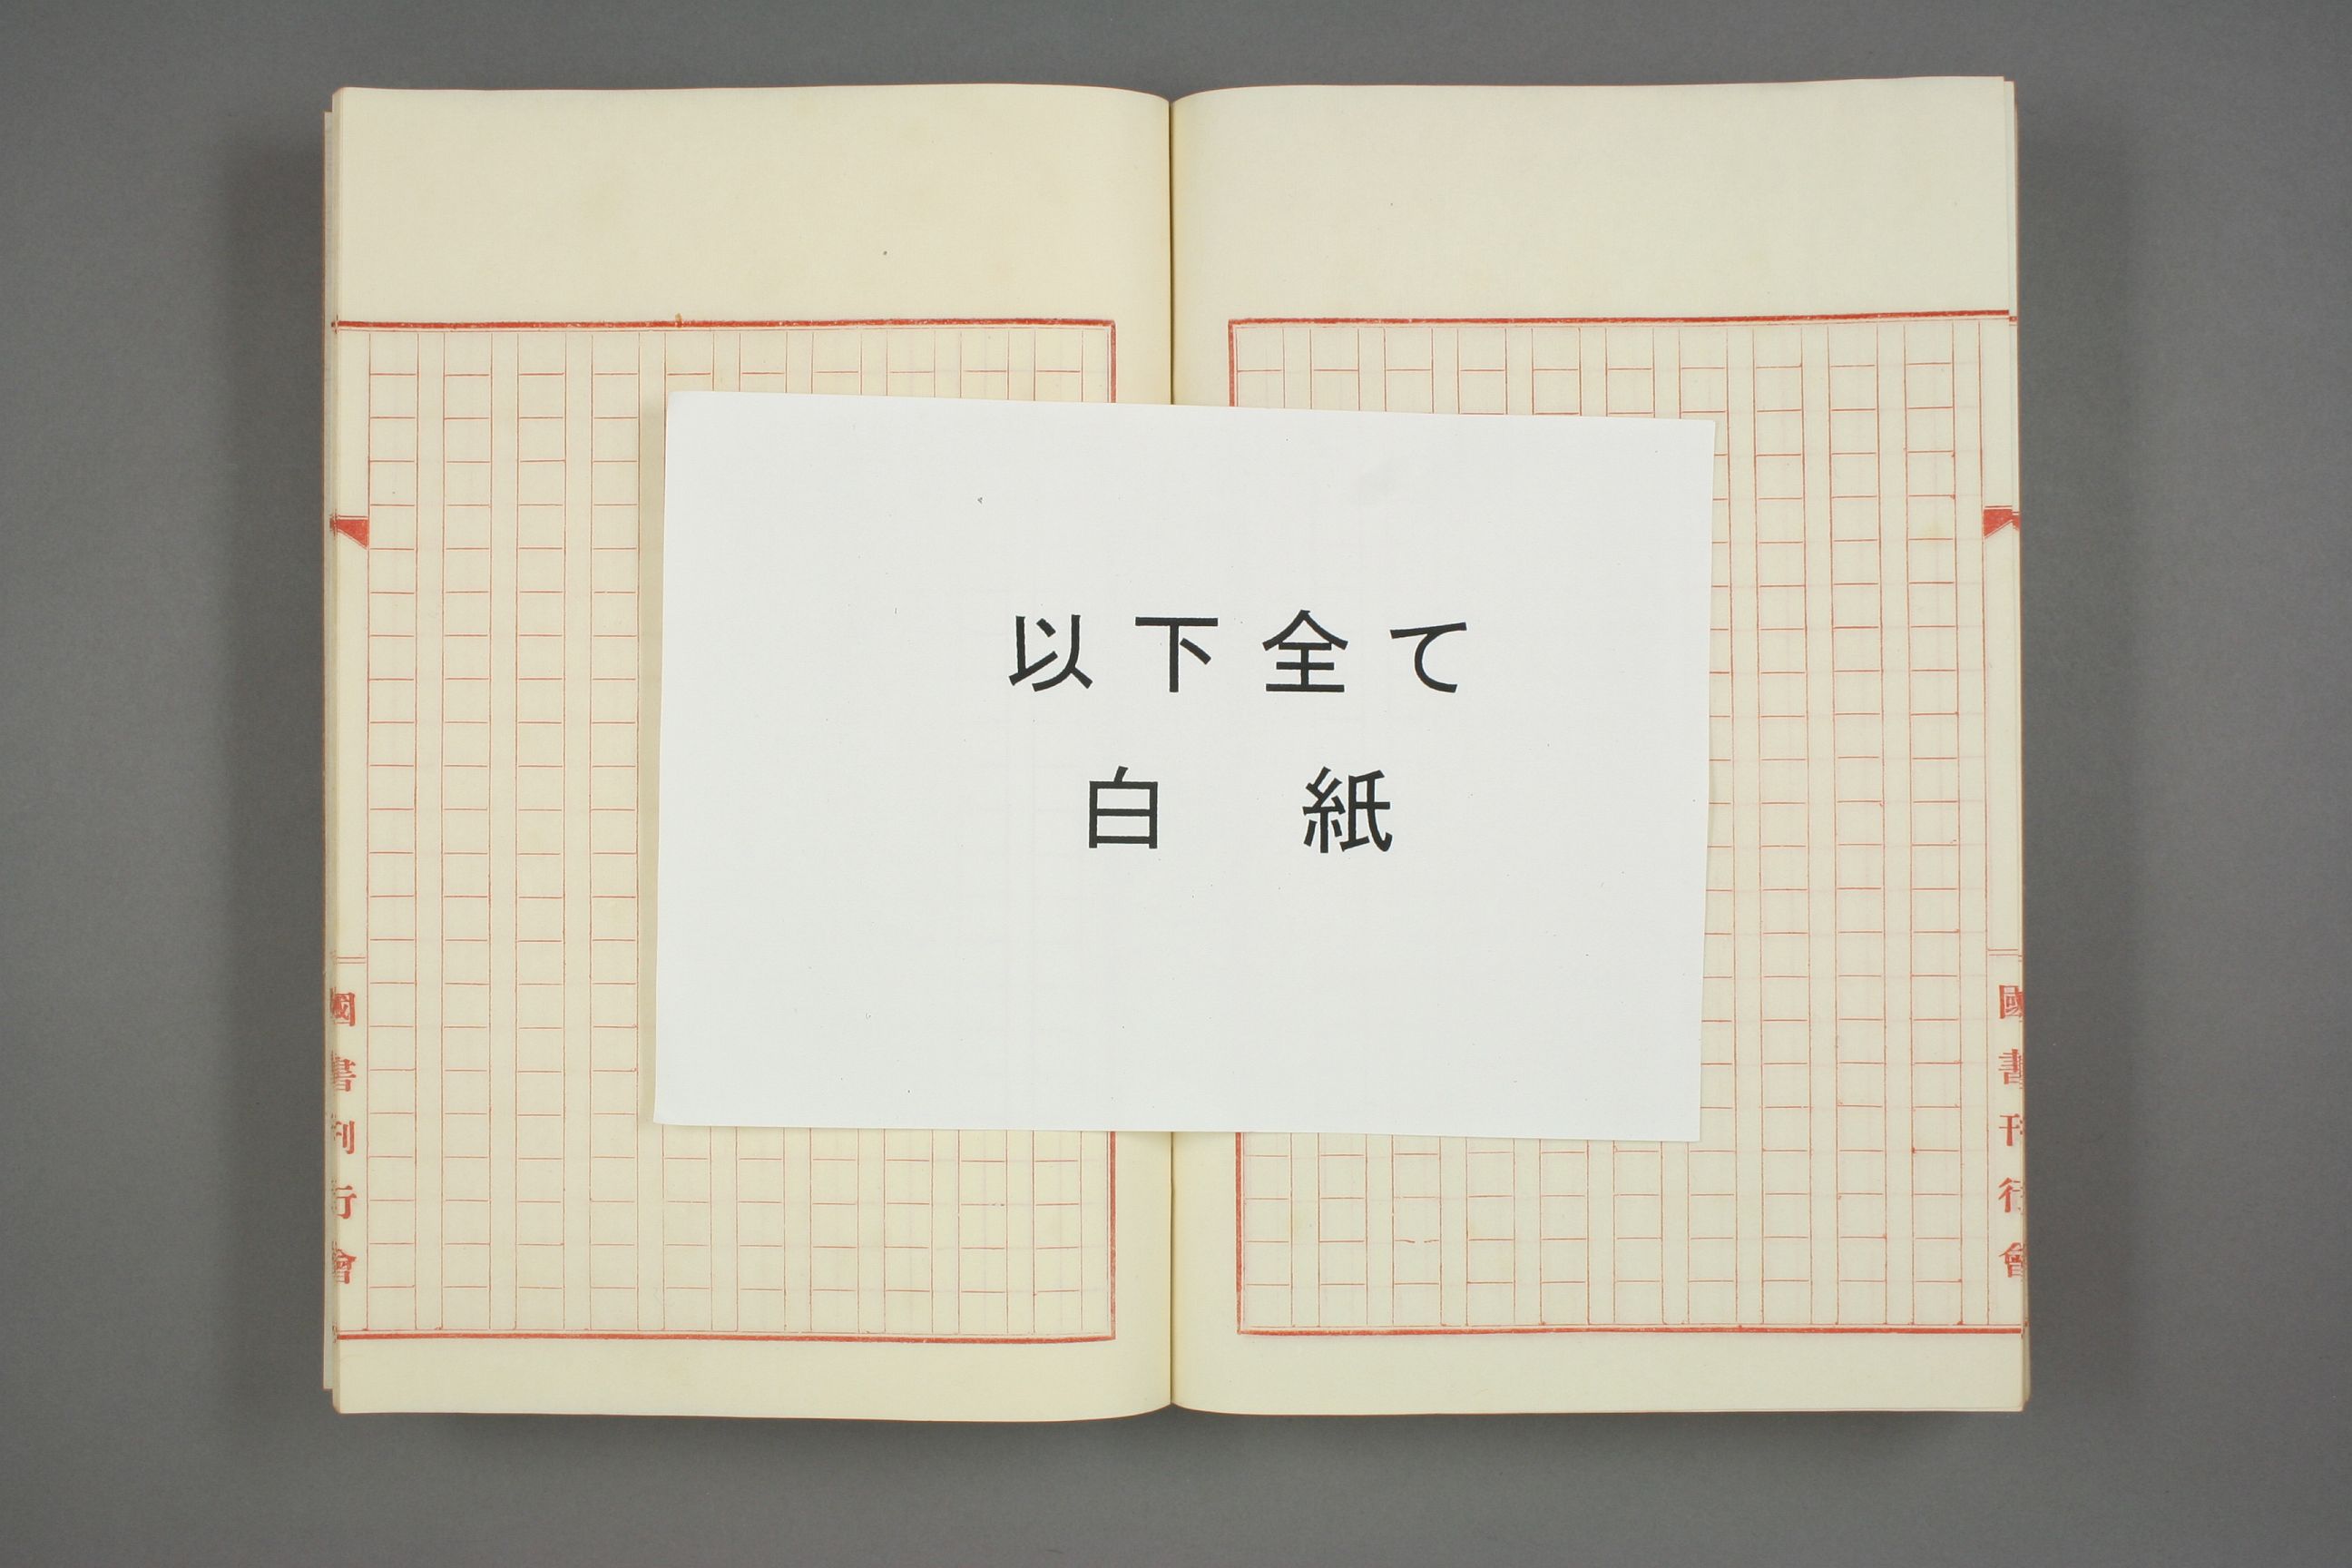 以下全て
白紙
國書刊行會
國書刊行會